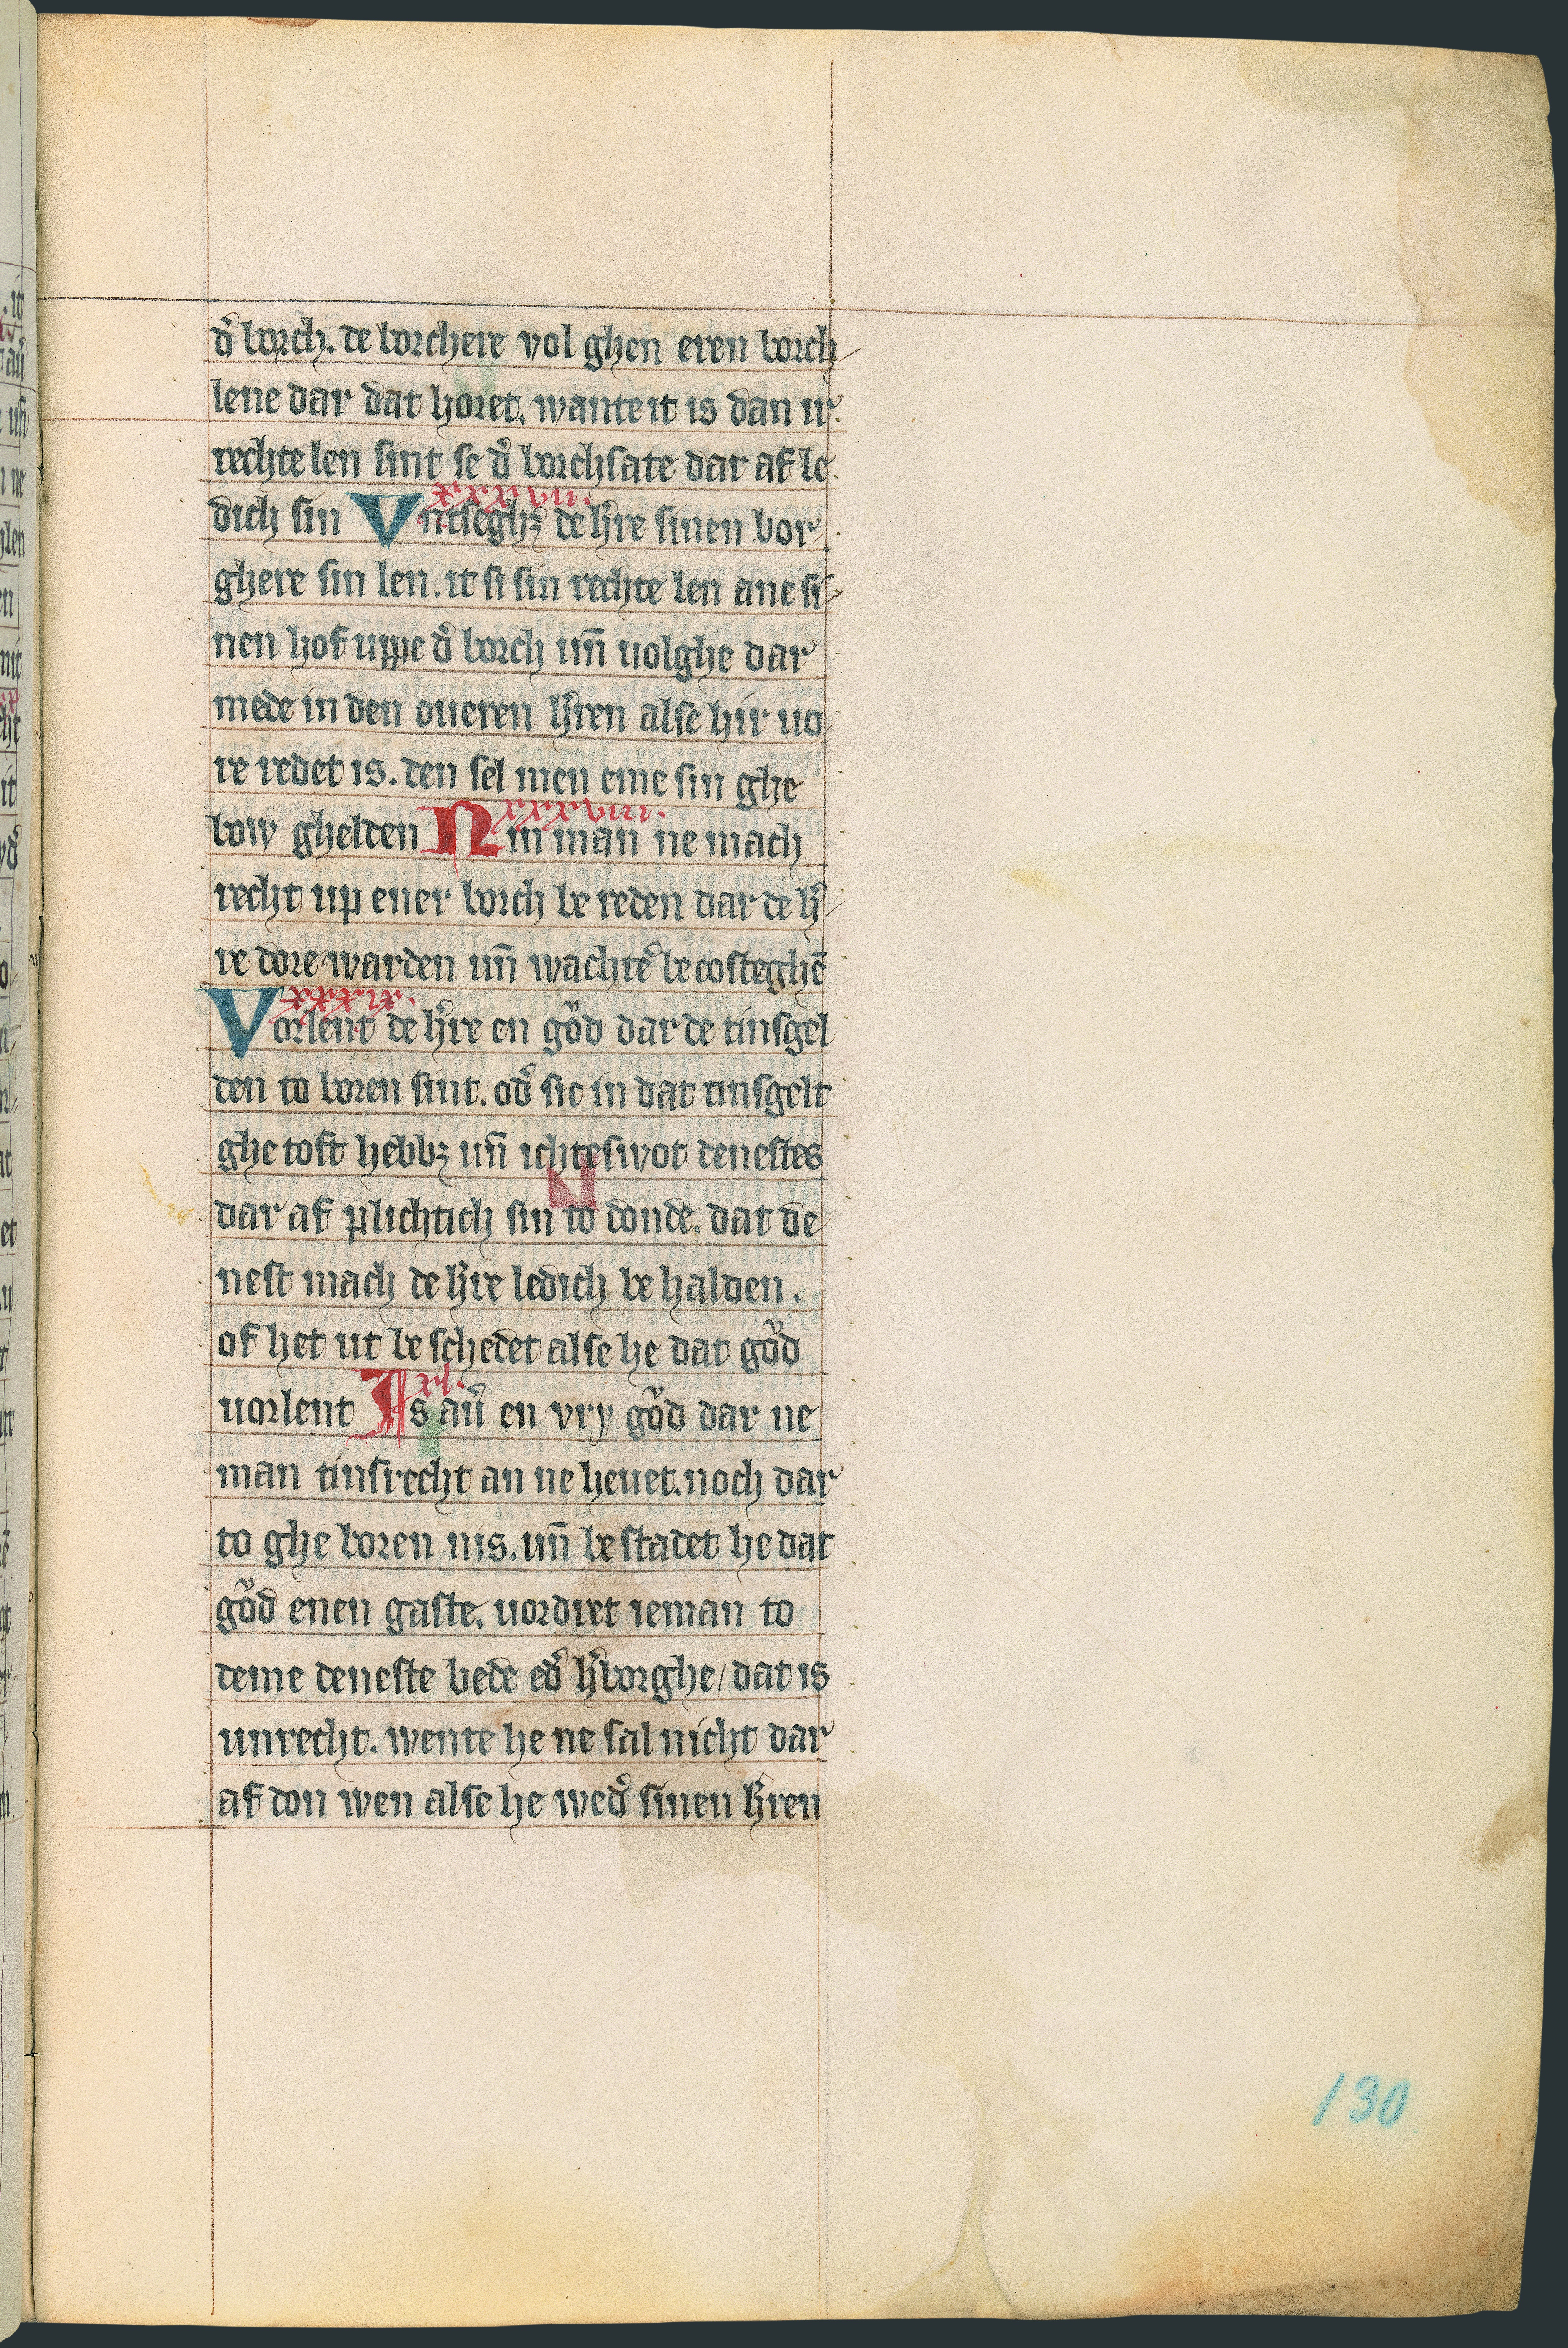 d᷑ borch. de borchere vol ghen eren borch-
lene dar dat horet. wante it is dan ir
rechte len sint se d᷑ borchsate dar af le
dich sin xxxvii. Vntseghꝫ de h᷑re sinen bor
ghere sin len. it si sin rechte len ane si-
nen hof uppe d᷑ borch un̄ uolghe dar
mede in den oueren h᷑ren alse hir uo
re redet is. den sel men eme sin ghe
bow ghelden xxxviii. Nin man ne mach
recht up ener borch be reden dar de h᷑-
re dore warden un̄ wachte᷑ be costeghē
xxxix. Vorlent de h᷑re en gůd dar de tinsgel
den to boren sint. od᷑ sic in dat tinsgelt
ghe toft hebbꝫ un̄ ichteswot denestes
dar af plichtich sin to donde. dat de
nest mach de h᷑re ledich be halden.
of het ut be schedet alse he dat gůd
uorlent xl. Is au᷑ en vry gůd dar ne
man tinsrecht an ne heuet. noch dar
to ghe boren nis. un̄ be stadet he dat
gůd enen gaste. uordret ieman to
deme deneste bede ed᷑ h᷑borghe/ dat is
unrecht. wente he ne sal nicht dar
af don wen alse he wed᷑ sinen h᷑ren
130